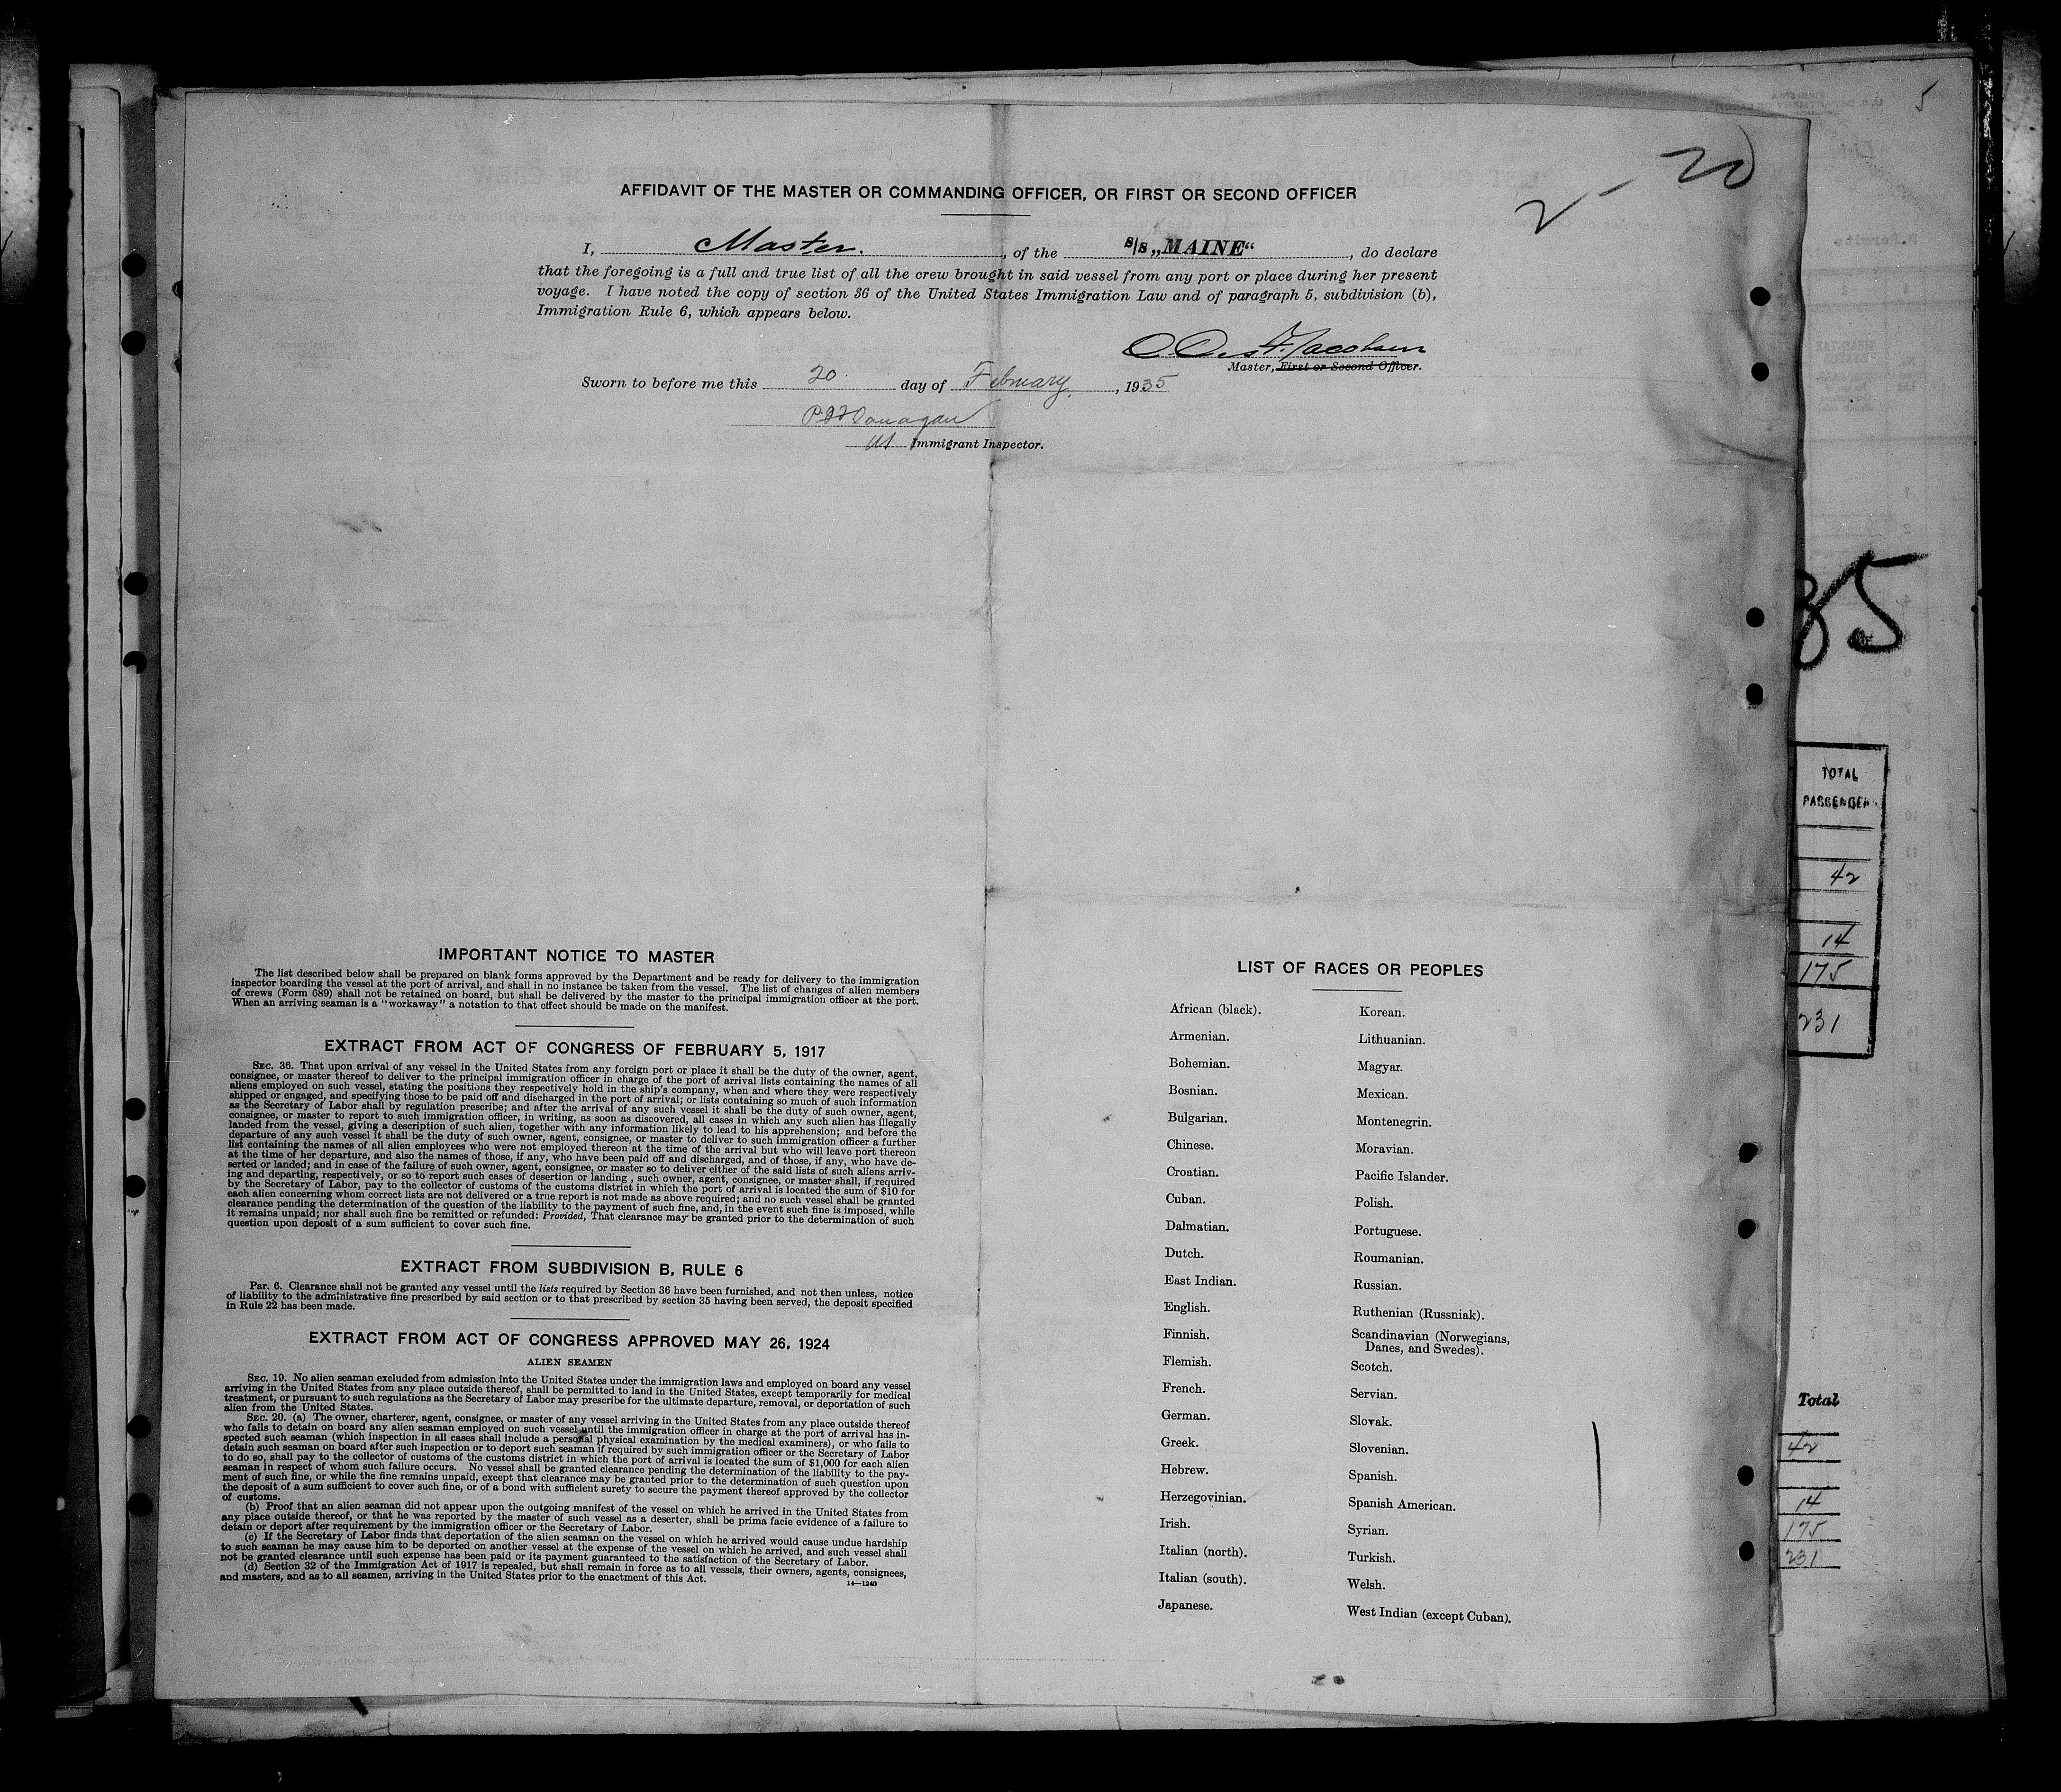 5
2 - 20
AFFIDAVIT OF THE MASTER OR COMMANDING OFFICER, OR FIRST OR SECOND OFFICER
I, Master. , of the S/S „MAINE“ , do declare
that the foregoing is a full and true list of all the crew brought in said vessel from any port or place during her present
voyage. I have noted the copy of section 36 of the United States Immigration Law and of paragraph 5, subdivision (b),
Immigration Rule 6, which appears below.
Jacobsen
Master, First or Second Officer.
Sworn to before me this 20 day of February , 1935
Immigrant Inspector.
IMPORTANT NOTICE TO MASTER
The list described below shall be prepared on blank forms approved by the Department and be ready for delivery to the immigration
inspector boarding the vessel at the port of arrival, and shall in no instance be taken from the vessel. The list of changes of alien members
of crews (Form 689) shall not be retained on board, but shall be delivered by the master to the principal immigration officer at the port.
When an arriving seaman is a "workaway" a notation to that effect should be made on the manifest.
EXTRACT FROM ACT OF CONGRESS OF FEBRUARY 5, 1917
SEC. 36. That upon arrival of any vessel in the United States from any foreign port or place it shall be the duty of the owner, agent,
consignee, or master thereof to deliver to the principal immigration officer in charge of the port of arrival lists containing the names of all
aliens employed on such vessel, stating the positions they respectively hold in the ship's company, when and where they were respectively
shipped or engaged, and specifying those to be paid off and discharged in the port of arrival; or lists containing so much of such information
as the Secretary of Labor shall by regulation prescribe; and after the arrival of any such vessel it shall be the duty of such owner, agent,
consignee, or master to report to such immigration officer, in writing, as soon as discovered, all cases in which any such alien has illegally
landed from the vessel, giving a description of such alien, together with any information likely to lead to his apprehension; and before the
departure of any such vessel it shall be the duty of such owner, agent, consignee, or master to deliver to such immigration officer a further
list containing the names of all alien employees who were not employed thereon at the time of the arrival but who will leave port thereon
at the time of her departure, and also the names of those, if any, who have been paid off and discharged, and of those, if any, who have de-
serted or landed; and in case of the failure of such owner, agent, consignee, or master so to deliver either of the said lists of such aliens arriv-
ing and departing, respectively, or so to report such cases of desertion or landing , such owner, agent, consignee, or master shall, if required
by the Secretary of Labor, pay to the collector of customs of the customs district in which the port of arrival is located the sum of $10 for
each alien concerning whom correct lists are not delivered or a true report is not made as above required; and no such vessel shall be granted
clearance pending the determination of the question of the liability to the payment of such fine, and, in the event such fine is imposed, while
it remains unpaid; nor shall such fine be remitted or refunded: Provided, That clearance may be granted prior to the determination of such
question upon deposit of a sum sufficient to cover such fine.
EXTRACT FROM SUBDIVISION B, RULE 6
Par. 6. Clearance shall not be granted any vessel until the lists required by Section 36 have been furnished, and not then unless, notice
of liability to the administrative fine prescribed by said section or to that prescribed by section 35 having been served, the deposit specified
in Rule 22 has been made.
EXTRACT FROM ACT OF CONGRESS APPROVED MAY 26, 1924
ALIEN SEAMEN
SEC. 19. No alien seaman excluded from admission into the United States under the immigration laws and employed on board any vessel
arriving in the United States from any place outside thereof, shall be permitted to land in the United States, except temporarily for medical
treatment, or pursuant to such regulations as the Secretary of Labor may prescribe for the ultimate departure, removal, or deportation of such
alien from the United States.
SEC. 20. (a) The owner, charterer, agent, consignee, or master of any vessel arriving in the United States from any place outside thereof
who fails to detain on board any alien seaman employed on such vessel until the immigration officer in charge at the port of arrival has in-
spected such seaman (which inspection in all cases shall include a personal physical examination by the medical examiners), or who fails to
detain such seaman on board after such inspection or to deport such seaman if required by such immigration officer or the Secretary of Labor
to do so, shall pay to the collector of customs of the customs district in which the port of arrival is located the sum of $1,000 for each alien
seaman in respect of whom such failure occurs. No vessel shall be granted clearance pending the determination of the liability to the pay-
ment of such fine, or while the fine remains unpaid, except that clearance may be granted prior to the determination of such question upon
the deposit of a sum sufficient to cover such fine, or of a bond with sufficient surety to secure the payment thereof approved by the collector
of customs.
(b) Proof that an alien seaman did not appear upon the outgoing manifest of the vessel on which he arrived in the United States from
any place outside thereof, or that he was reported by the master of such vessel as a deserter, shall be prima facie evidence of a failure to
detain or deport after requirement by the immigration officer or the Secretary of Labor.
(c) If the Secretary of Labor finds that deportation of the alien seaman on the vessel on which he arrived would cause undue hardship
to such seaman he may cause him to be deported on another vessel at the expense of the vessel on which he arrived, and such vessel shall
not be granted clearance until such expense has been paid or its payment guaranteed to the satisfaction of the Secretary of Labor.
(d) Section 32 of the Immigration Act of 1917 is repealed, but shall remain in force as to all vessels, their owners, agents, consignees,
and masters, and as to all seamen, arriving in the United States prior to the enactment of this Act.
14—1240
LIST OF RACES OR PEOPLES
African (black).
Armenian.
Bohemian.
Bosnian.
Bulgarian.
Chinese.
Croatian.
Cuban.
Dalmatian.
Dutch.
East Indian.
English.
Finnish.
Flemish.
French.
German.
Greek.
Hebrew.
Herzegovinian.
Irish.
Italian (north).
Italian (south).
Japanese.
Korean.
Lithuanian.
Magyar.
Mexican.
Montenegrin.
Moravian.
Pacific Islander.
Polish.
Portuguese.
Roumanian.
Russian.
Ruthenian (Russniak).
Scandinavian (Norwegians,
Danes, and Swedes).
Scotch.
Servian.
Slovak.
Slovenian.
Spanish.
Spanish American.
Syrian.
Turkish.
Welsh.
West Indian (except Cuban).
35
TOTAL
PASSENGER
42
14
175
231
Total
42
14
175
231